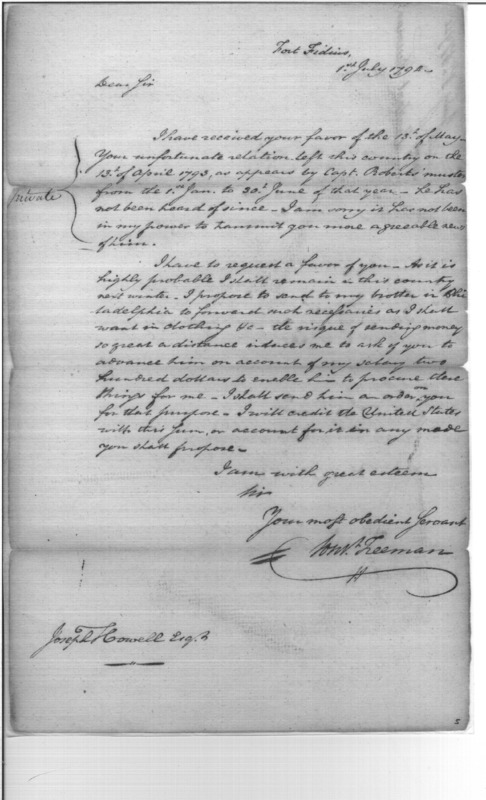 Fort Fidius,
1st July 1794
Dear Sir
I have received your favor of the 13th of May –
Your unfortunate relation left this country on the
13th of April 1793, as appears by Capt. Roberts' muster
from the 1st Jan. to 30th June of that year – he has
not been heard of since – I am sorry it has not been
in my power to transmit you more agreeable news
of him.
Private
I have to request a favor of you – As it is
highly probable I shall remain in this country
next winter – I propose to send to my brother in Phi
ladelphia to forward such necessaries as I shall
want in clothing &c – the risque of sending money
so great a distance induces me to ask of you to
advance him on account of my salary two
hundred dollars to enable him to procure these
things for me – I shall send him an order on you
for that purpose – I will credit the United States
with this sum, or account for it in any mode
you shall propose –
I am with great esteem
Sir
Your most obedient Servant
Freeman
Joseph Howell Esqr